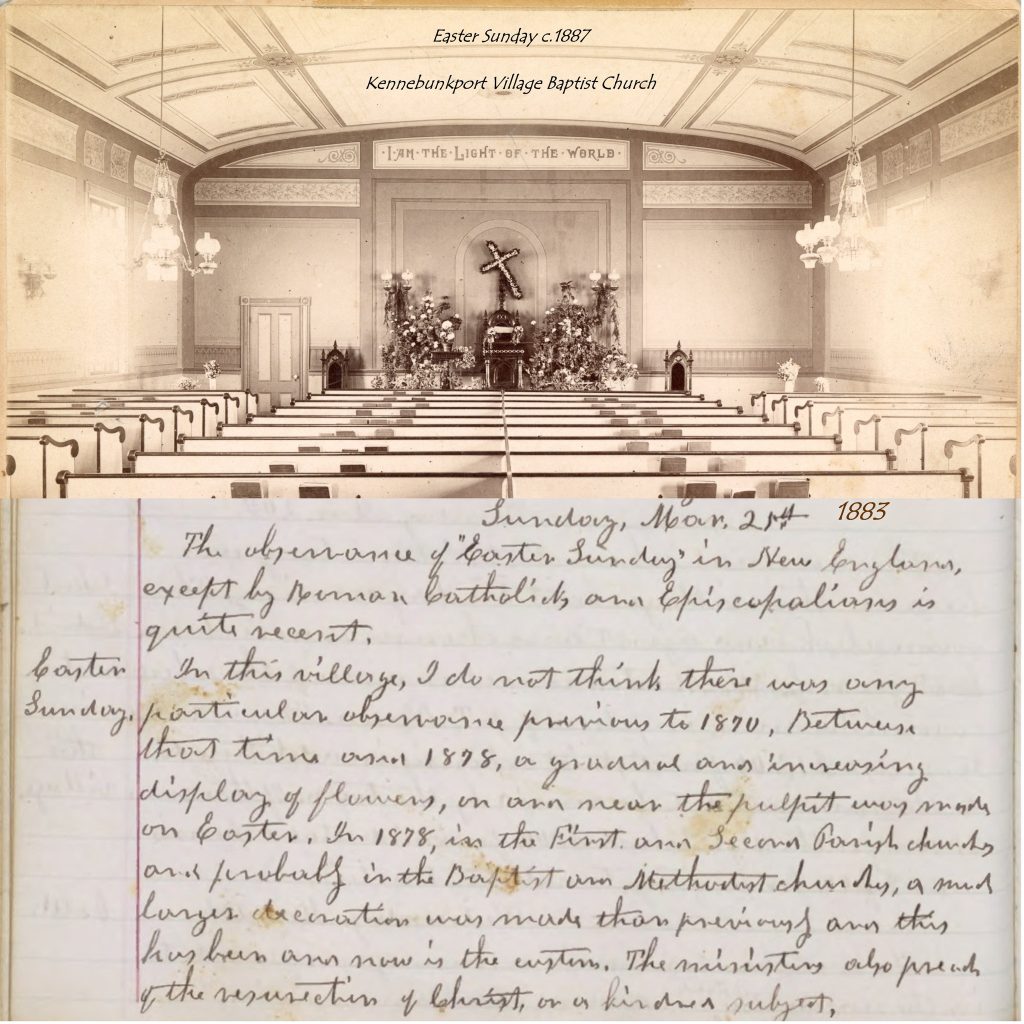 Easter Sunday c.1887
Kennebunkport Village Baptist Church
·I·AM·THE·LIGHT·OF·THE·WORLD·
Sunday, Mar. 25th 1883
The observance of "Easter Sunday" in New England,
except by Roman Catholicks and Episcopalians is
quite recent.
Easter
Sunday.
In this village, I do not think there was any
particular observance previous to 1870. Between
that time and 1878, a gradual and increasing
display of flowers, on and near the pulpit was made
on Easter. In 1878, in the First. and Second Parish churches
and probably in the Baptist and Methodist churches, a much
larger decoration was made than previously and this
has been and now is the custom. The ministers also preach
of the resurrection of Christ, or a kindred subject.